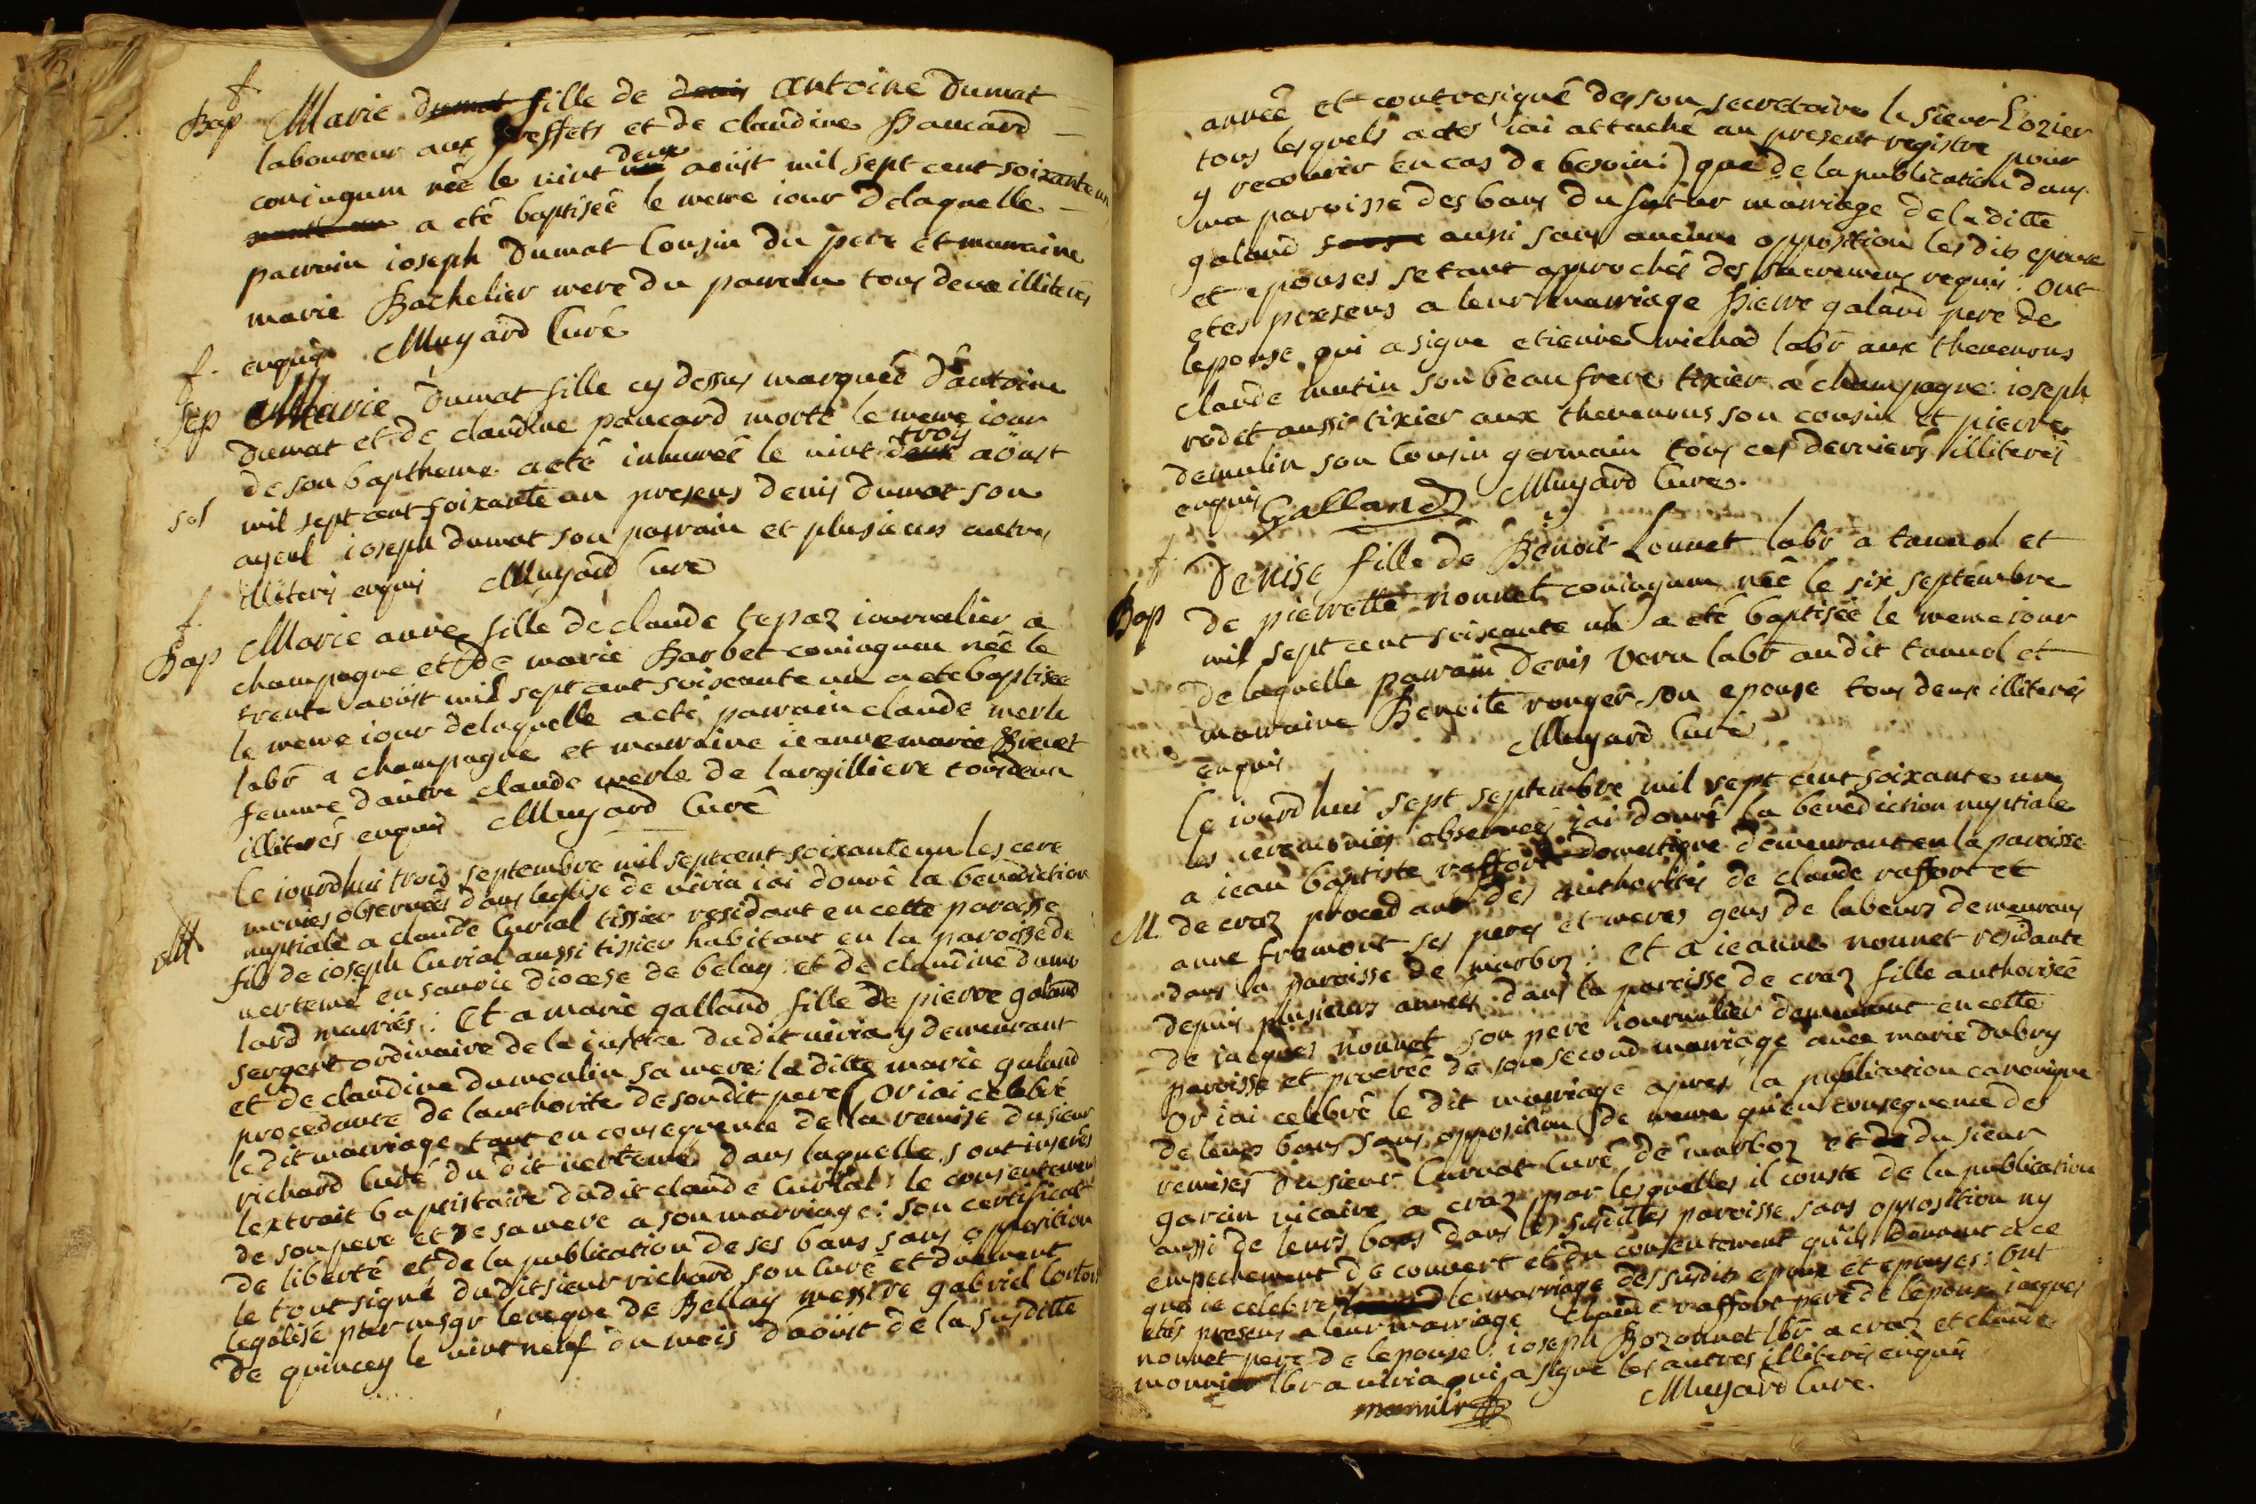 f.
Bap Marie dumat fille de denis antoine Dumat
laboureur aux greffets et de claudine Paucard
coniugum née le vint deux aoüst mil sept cent soixante un
a eté baptisée le meme iour delaquelle
parrain ioseph Dumat Cousin du pere et marraine
marie Bachelier mere du parrain tous deux illiterés
enquis Muyard Curé
f.
sep Marie Dumat fille cy dessus marquée d'antoine
Dumat et de claudine paucard morte le meme iour
de son baptheme a eté inhumée le vint deux trois aoust
sol mil sept cent soixante un presens denis dumat son
ayeul ioseph dumat son parrain et plusieurs autres
illiterés enquis Muyard Curé
f.
Bap Marie anne fille de claude tepaz iournalier a
champagne et de marie Barbet coniugum née le
trente aoüst mil sept cent soixante un a eté baptisée
le meme iour delaquelle a eté parrain claude merle
labr a champagne et marraine ieanne marie Brevet
femme d'autre claude merle de largilliere tous deux
illiterés enquis Muyard Curé
Ce iourdhui trois septembre mil sept cent soixante un les cere
monies observées dans leglise de viria iai donné la benediction
M nuptiale a claude Curial tissier residant en cette paroisse
fils de ioseph Curial aussi tissier habitant en la paroisse de
vertemé en savoie diocese de belay : et de claudine dumo
lard mariés : Et a marie galland fille de pierre galand
sergent ordinaire de la iustice dudit viria y demeurant
et de claudine dumoulin sa mere : la ditte marie galand
procedante de lauthorité de son dit pere ( Or iai celebré
le dit marriage tant en consequence de la remise du sieur
richard Curé du dit vertemé dans laquelle sont inserés
lextrait baptistaire dudit claude Curial : le consentement
de son pere et de sa mere a son marriage : son certificat
de liberté et de la publication de ses bans sans opposition
le tout signé dudit sieur richard son Curé et duement
legalisé par msgr leveque de Bellay messire gabriel Cortois
de quincey le vint neuf du mois d'aoüst de la susditte
année et contresigné de son secretaire le sieur Lozier
tous lesquels actes iai attaché au present registre pour
y recourir en cas de besoin : ) que de la publication dans
ma paroisse des bans du futur marriage de la ditte
galand aussi sans aucune opposition les dits epoux
et epouses setant approchés des sacremens requis : Ont
etes presens a leur marriage Pierre galand pere de
lepouse qui a signé etienne michod labr aux thevenons
claude mutin son beau frere tixier a champagne : ioseph
rodet aussi tixier aux thevenons son cousin et pierre
demulin son Cousin germain tous ces derniers illiterés
enquis Galland Muyard Curé.
f
Denise fille de Benoit Louvet labr a tannol et
Bap de pierrette nonnet coniugum née le six septembre
mil sept cent soixante un a eté baptisée le meme iour
de laquelle parrain denis Veru labr audit tannol et
marraine Benoite ronger son epouse tous deux illiterés
enquis Muyard Curé
Ce iourdhui sept septembre mil sept cent soixante un
les ceremonies observées iai donné la benediction nuptiale
a iean baptiste raffort domestique demeurant en la paroisse
M. de craz procedant des authorités de claude raffort et
anne fremont ses peres et meres gens de labeurs demeurans
dans la paroisse de marboz : Et a ieanne nonnet residante
depuis plusieurs années dans la paroisse de craz fille authorisée
de iacques nonnet son pere iournalier demeurant en cette
paroisse et procréée de son second marriage avec marie dubry
Or iai celebré le dit marriage apres la publication canonique
de leurs bans sans opposition de meme qu'en consequence des
remises du sieur Curnat Curé de marboz et du sieur
garin vicaire a craz par lesquelles il conste de la publication
aussi de leurs bans dans les susdittes paroisse sans opposition ny
empechement de couvert et du consentement qu'ils donnent a ce
que ie celebre le marriage des susdits epoux et epouses : Ont
etés presens a leur marriage Claude raffort pere de lepoux iacques
nonnet pere de lepouse : ioseph Bozonnet lbr a craz et claude
monnier lbr a viria qui a signé les autres illiterés enquis
monnier Muyard Curé.